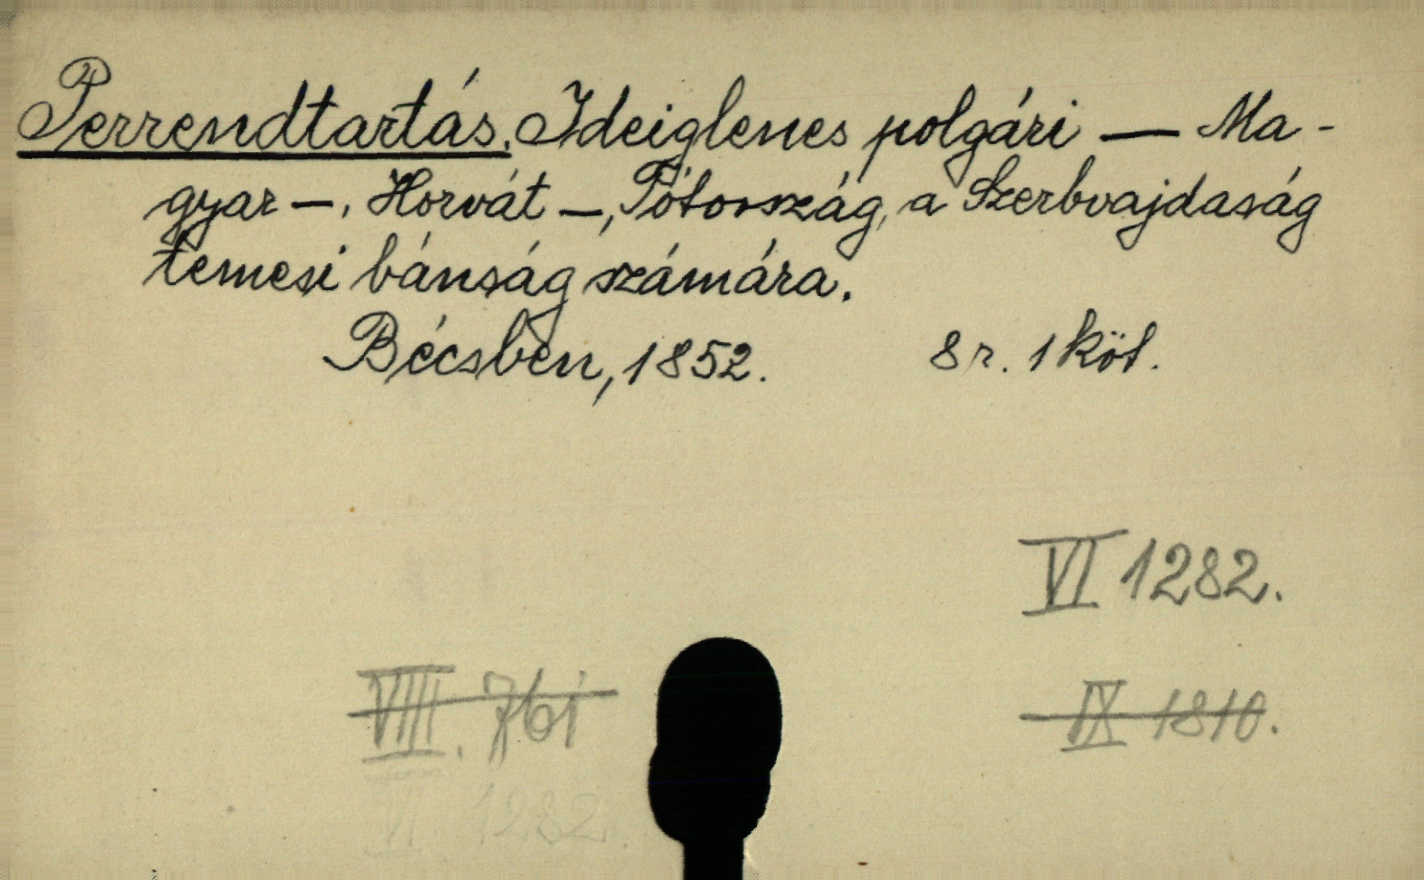 Perrendtartás. Ideiglenes polgári — Ma-
gyar –, Horvát –, Tótország, a Szerbvajdaság
temesi bánság számára.
Bécsben, 1852. 8 r. 1 köt.
VI 1282.
VIII. 761
IX 1810.
VI. 1282.